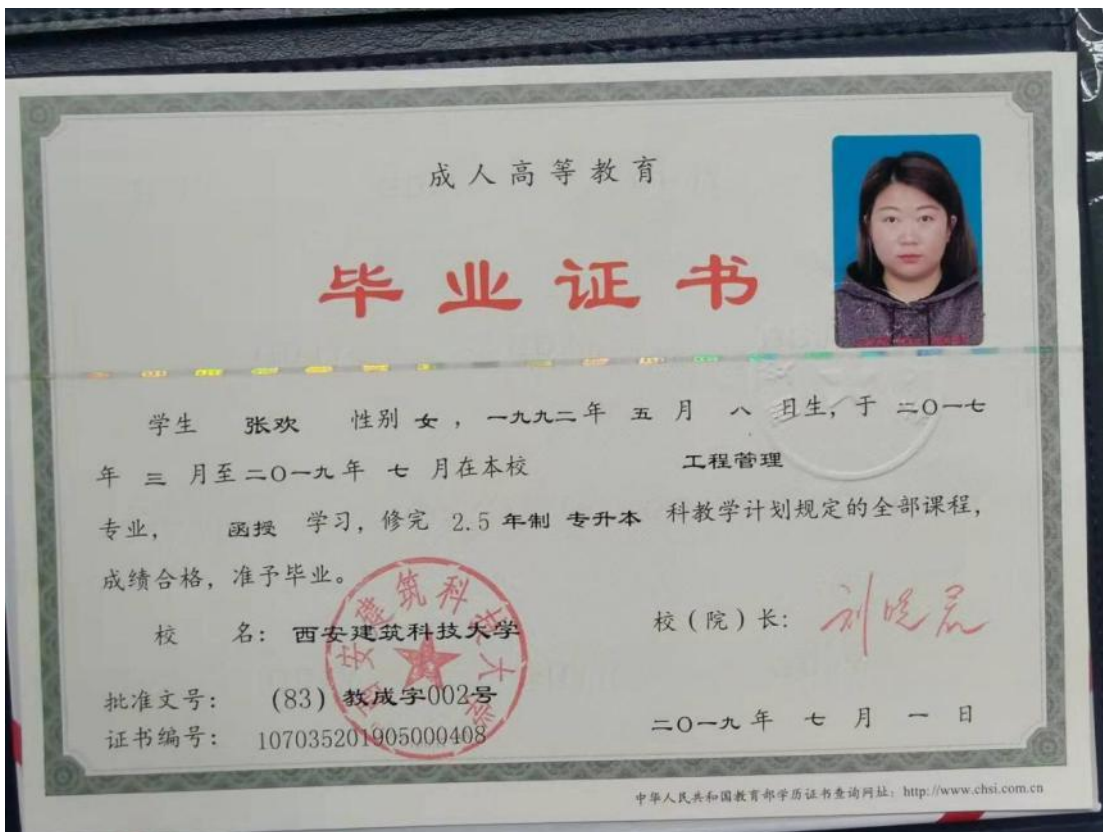 成人高等教育
毕业证书
学生 张欢 性别 女 ， 一九九二年 五 月 八 日生，于 二〇一七
年 三 月至二〇一九年 七 月在本校 工程管理
专业， 函授 学习，修完 2.5 年制 专升本 科教学计划规定的全部课程，
成绩合格，准予毕业。
校 名：西安建筑科技大学
校（院）长：刘晓君
批准文号： (83) 教成字002号
证书编号： 107035201905000408
二〇一九年 七 月 一 日
西安建筑科技大学
中华人民共和国教育部学历证书查询网址：http://www.chsi.com.cn